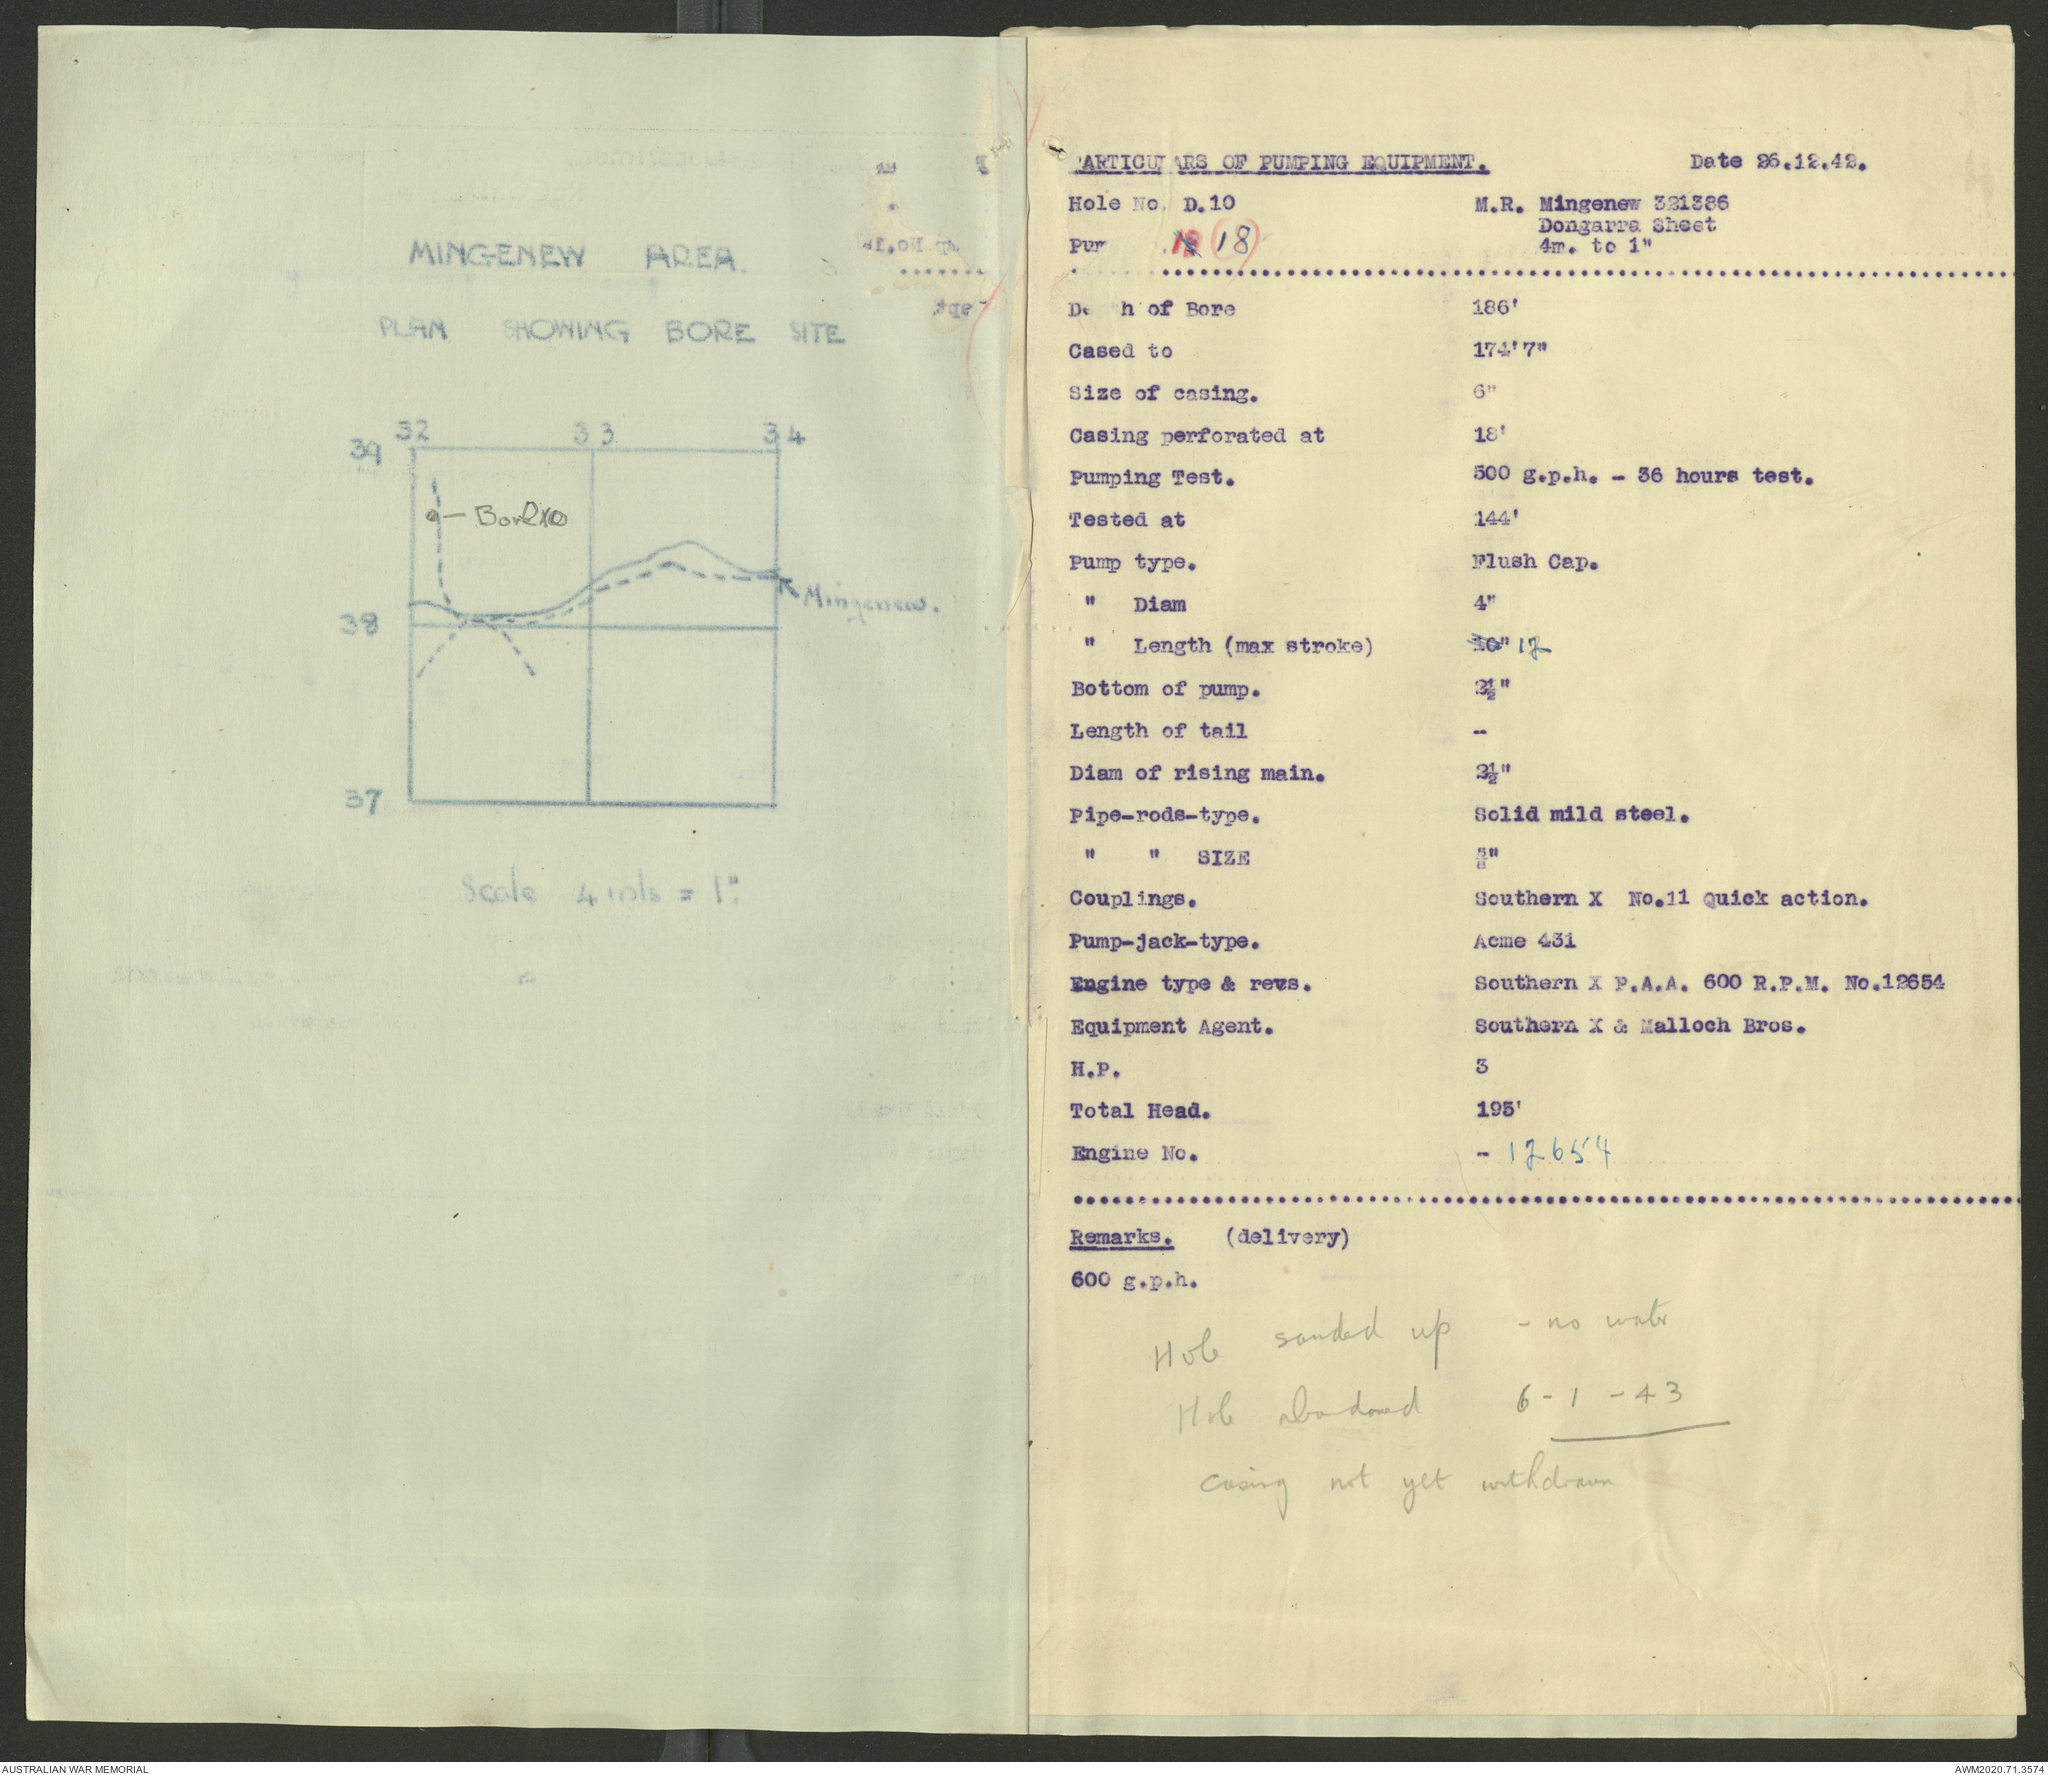 MINGENEW AREA.
PLAN SHOWING BORE SITE
32 33 34
39
Bore 10
Mingenew.
38
37
Scale 4 mls = 1".
PARTICULARS OF PUMPING EQUIPMENT. Date 26.12.42.
Hole No. D.10 M.R. Mingenew 321386
Dongarra Sheet
Pum 18 4m. to 1"
Depth of Bore 186'
Cased to 174'7"
Size of casing. 6"
Casing perforated at 18'
Pumping Test. 500 g.p.h. - 36 hours test.
Tested at 144'
Pump type. Flush Cap.
" Diam 4"
" Length (max stroke) 10" 12
Bottom of pump. 2½"
Length of tail -
Diam of rising main. 2½"
Pipe-rods-type. Solid mild steel.
" " SIZE ⅝"
Couplings. Southern X No.11 Quick action.
Pump-jack-type. Acme 431
Engine type & revs. Southern X P.A.A. 600 R.P.M. No.12654
Equipment Agent. Southern X & Malloch Bros.
H.P. 3
Total Head. 195'
Engine No. - 12654
Remarks. (delivery)
600 g.p.h.
Hole sanded up - no water
Hole abandoned 6-1-43
casing not yet withdrawn
AUSTRALIAN WAR MEMORIAL AWM2020.71.3574